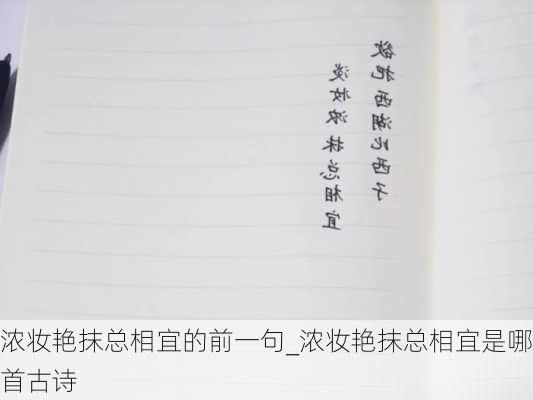 欲把西湖比西子
淡妆浓抹总相宜
浓妆艳抹总相宜的前一句_浓妆艳抹总相宜是哪
首古诗